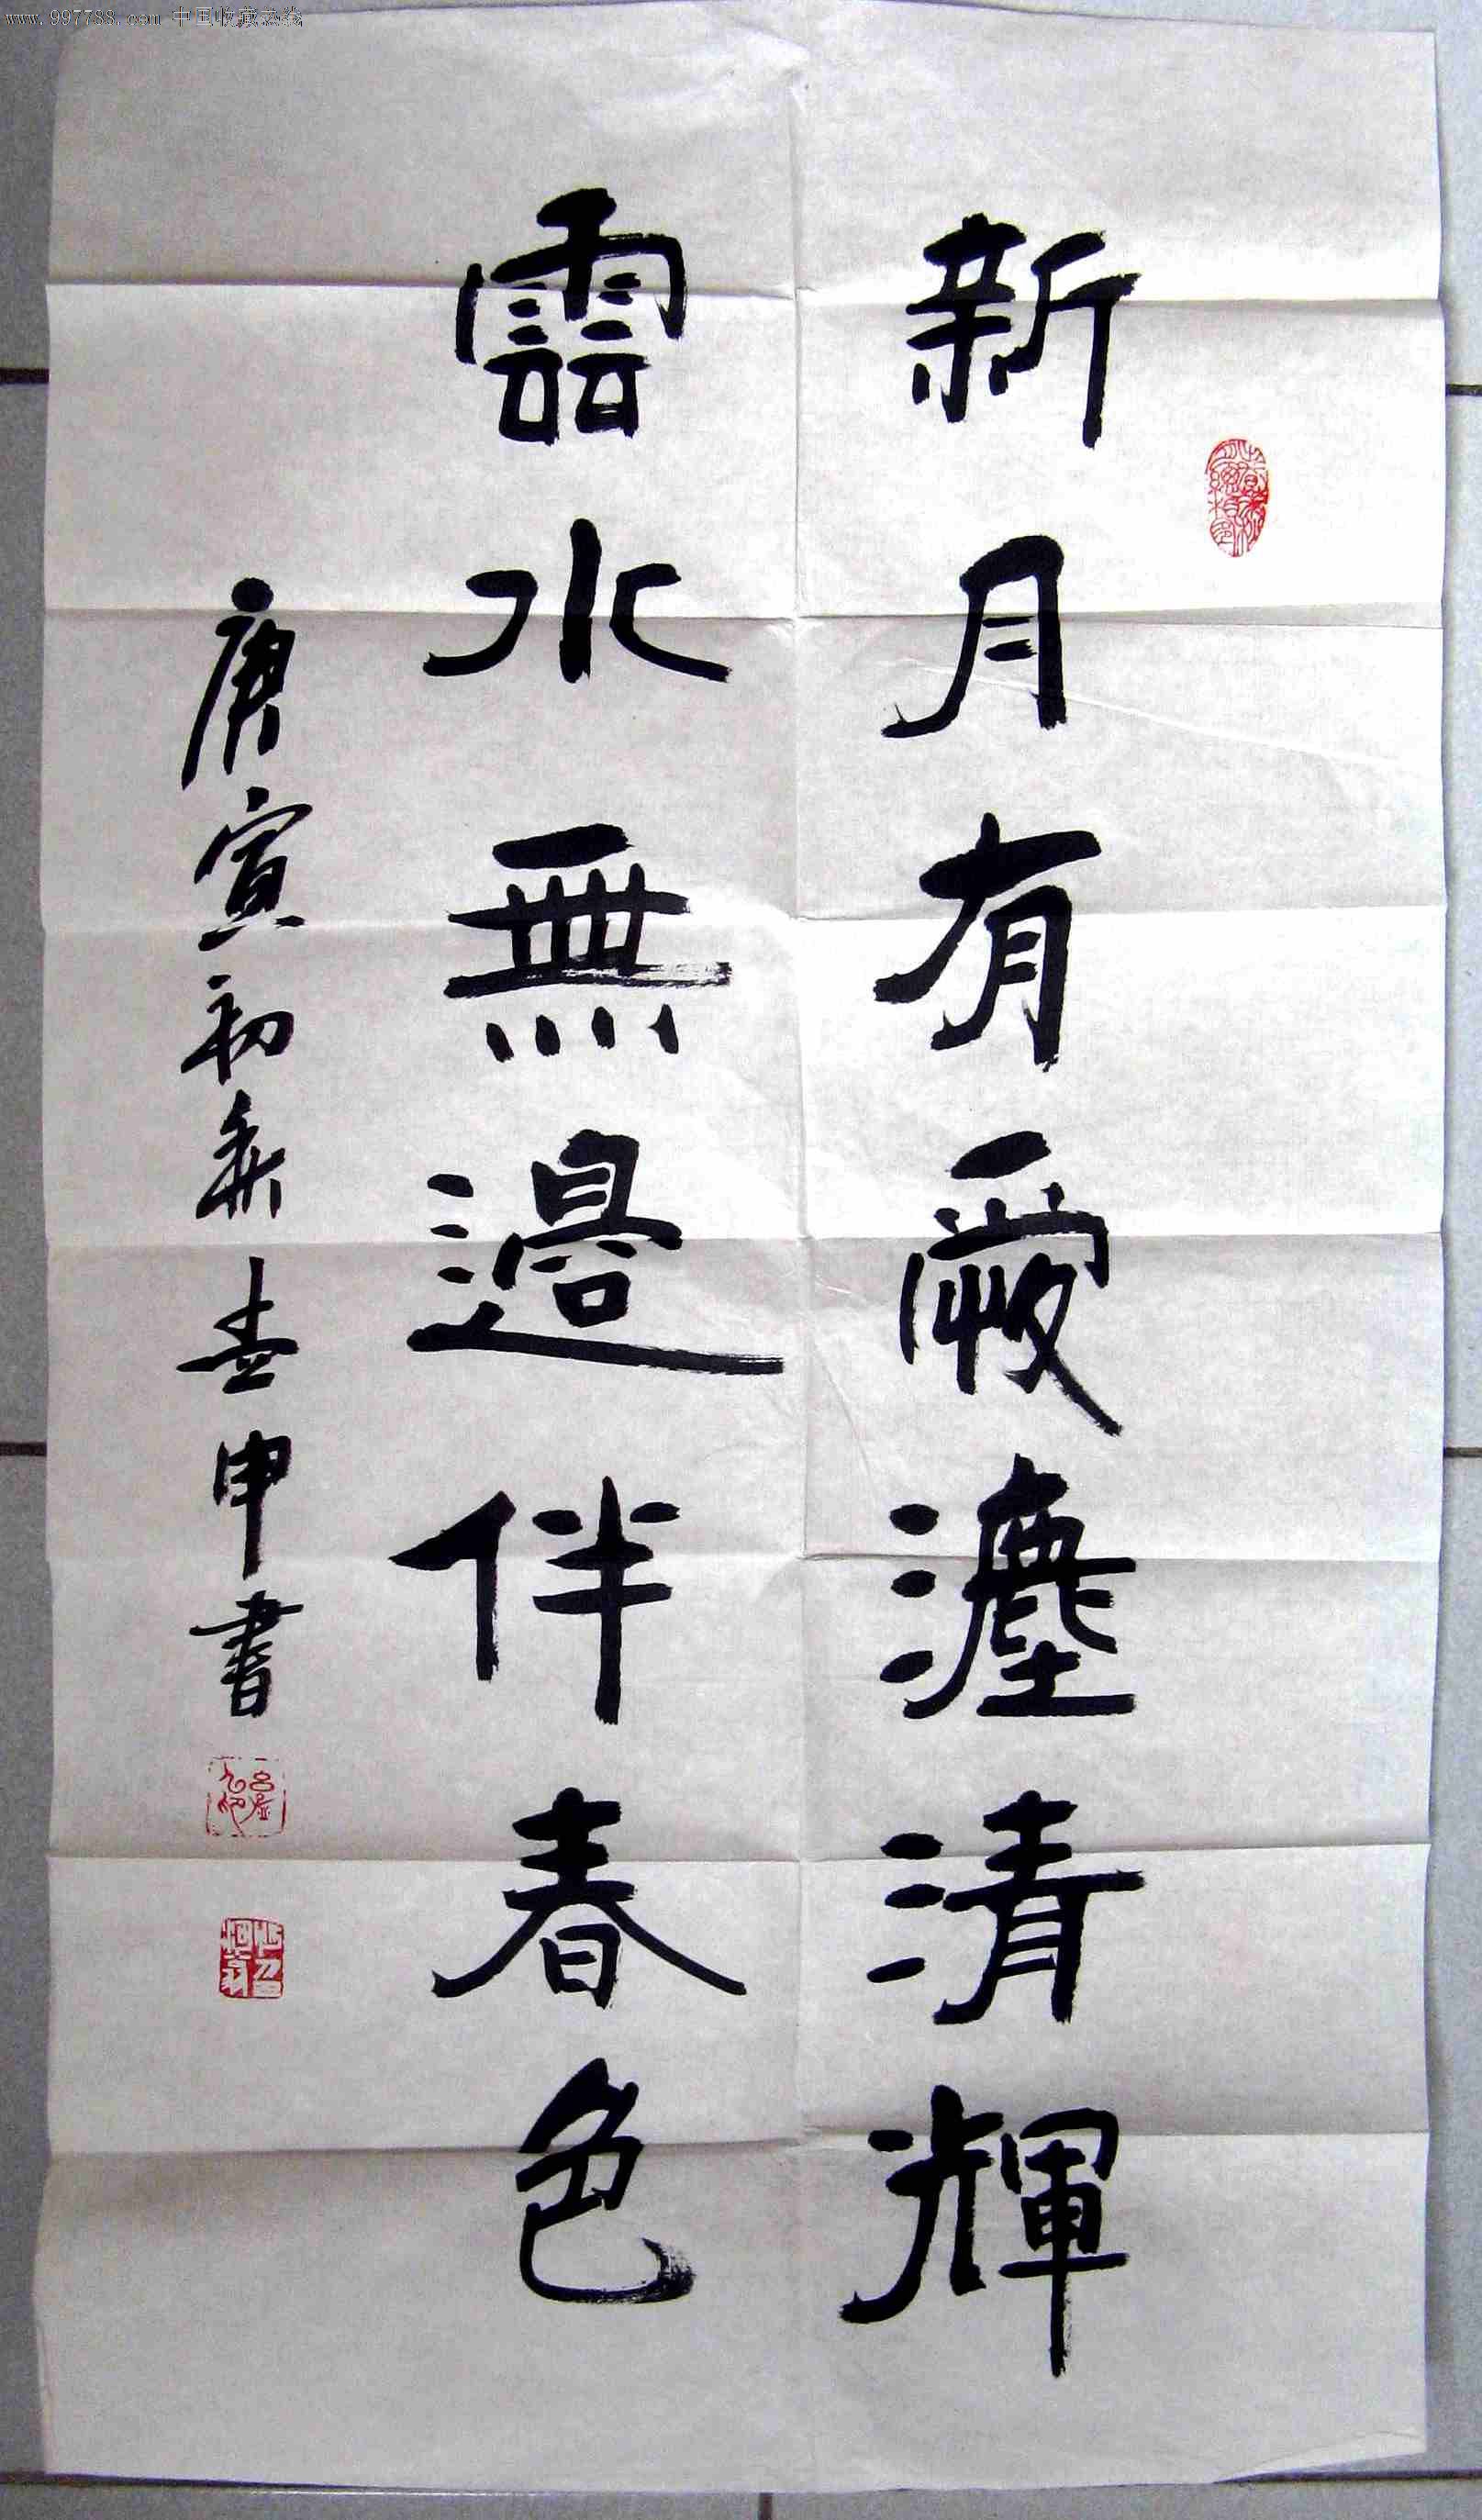 www.997788.com 中国收藏热线
新月有清輝
雲水無邊伴春色
庚寅初申書